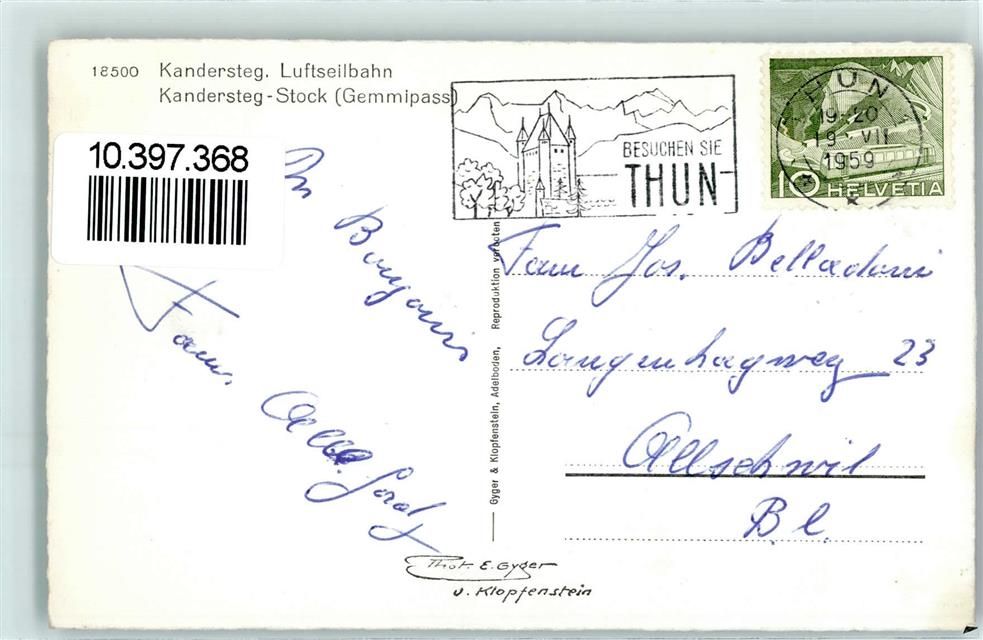 18500 Kandersteg. Luftseilbahn
Kandersteg-Stock (Gemmipass)
10.397.368
BESUCHEN SIE
THUN
THUN
19-20
19 VII
1959
10 HELVETIA
Fam. Jos. Belladoni
Langenhagweg 23
Allschwil
B.L.
Fam.
Gyger & Klopfenstein, Adelboden, Reproduktion verboten
Phot. E. Gyger
u. Klopfenstein